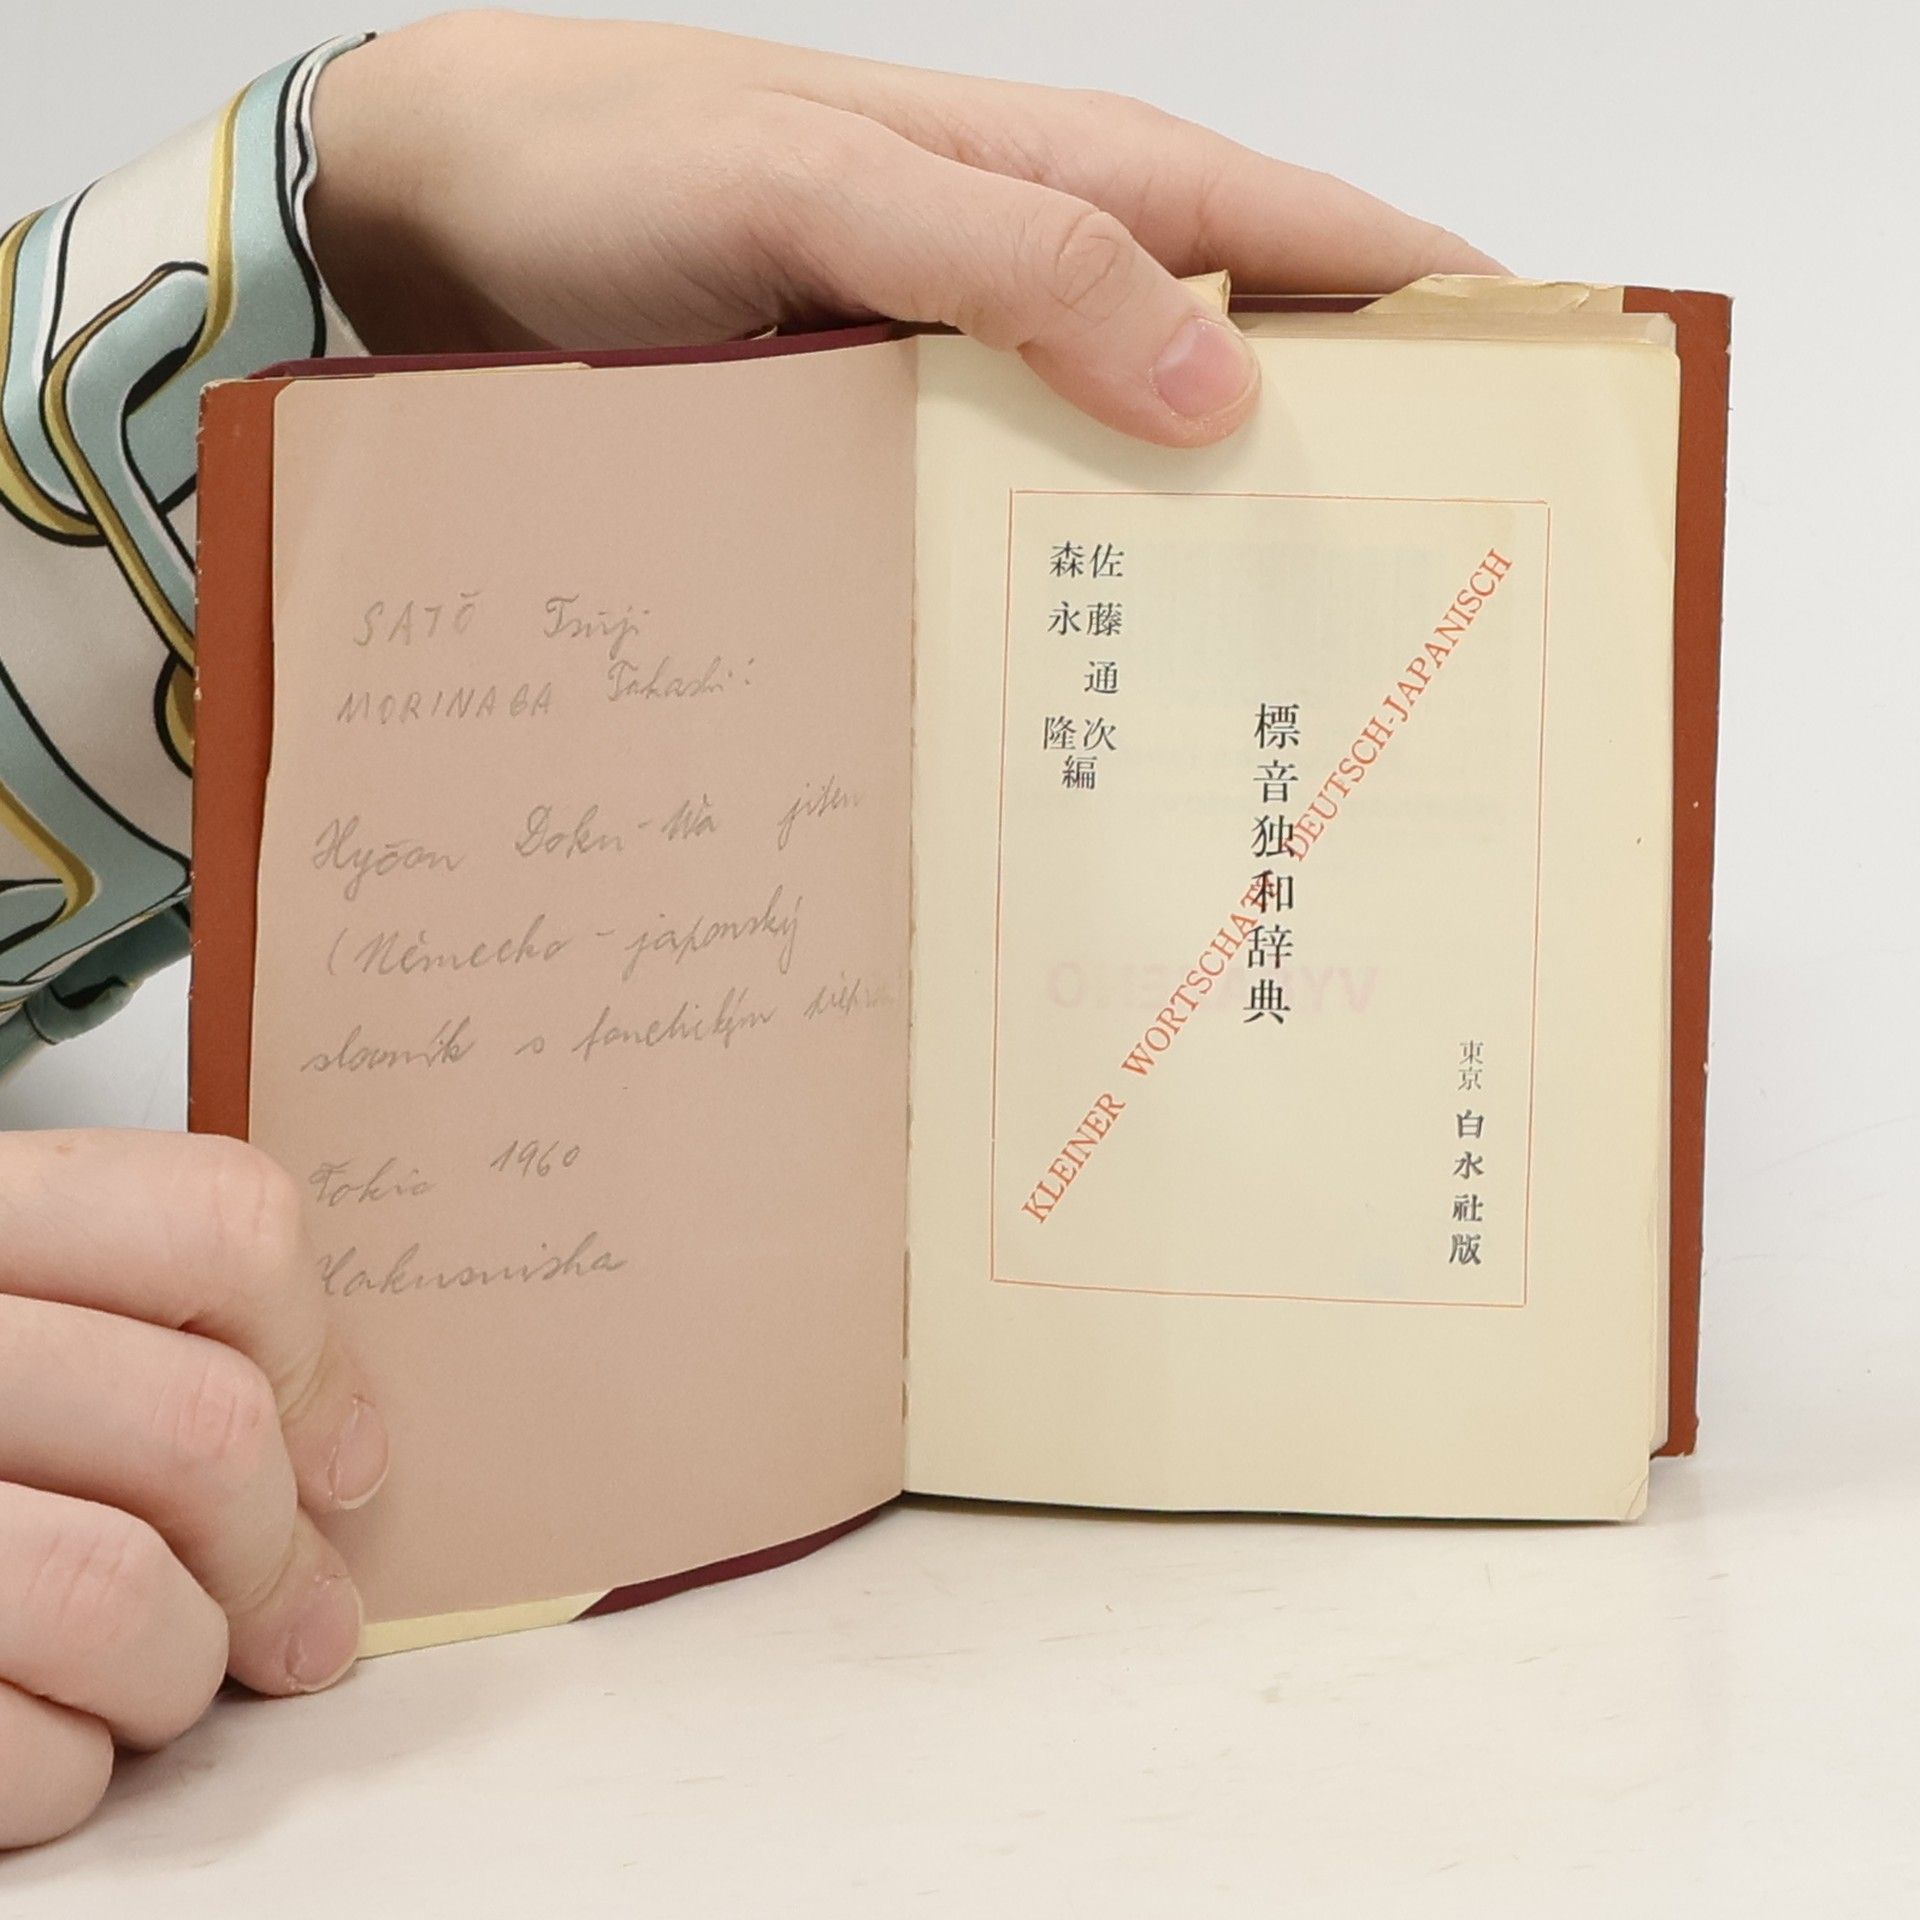 SATŌ Tsūji
MORINAGA Takashi:
Hyōon Doku-Wa jiten
(Německo-japonský
slovník s fonetickým
Tokio 1960
Hakusuisha
佐藤通次
森永隆
編
標音独和辞典
KLEINER WORTSCHATZ DEUTSCH-JAPANISCH
東京 白水社版